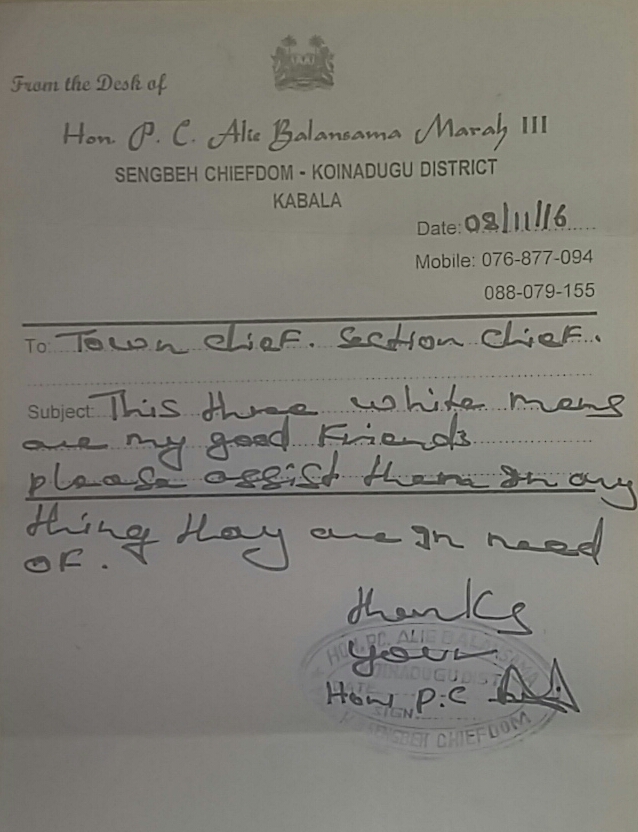 From the Desk of
Hon. P. C. Alie Balansama Marah III
SENGBEH CHIEFDOM - KOINADUGU DISTRICT
KABALA
Date: 08/11/16
Mobile: 076-877-094
088-079-155
To: Town chief. section chief.
Subject: This three white mens
are my good Friends
please assist them in any
thing they are in need
of.
thanks
your
Hon P.C
HON. PC. ALIE BALANSAMA
KOINADUGU DIST
SIGN
SENGBEH CHIEFDOM